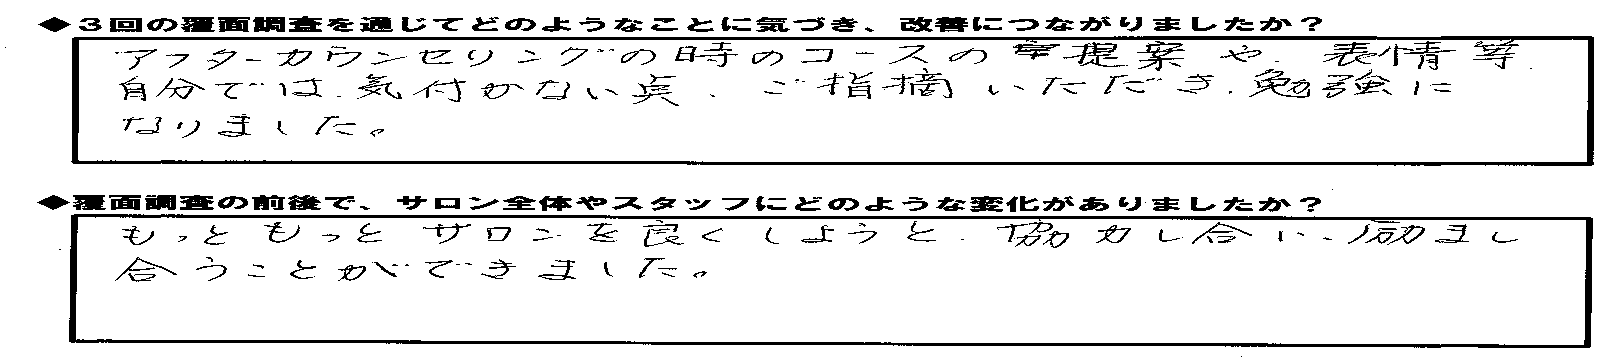 ◆３回の覆面調査を通じてどのようなことに気づき、改善につながりましたか？
アフターカウンセリングの時のコースの提案や、表情等、
自分では、気付かない点、ご指摘いただき、勉強に
なりました。
◆覆面調査の前後で、サロン全体やスタッフにどのような変化がありましたか？
もっともっとサロンを良くしようと、協力し合い、励まし
合うことができました。